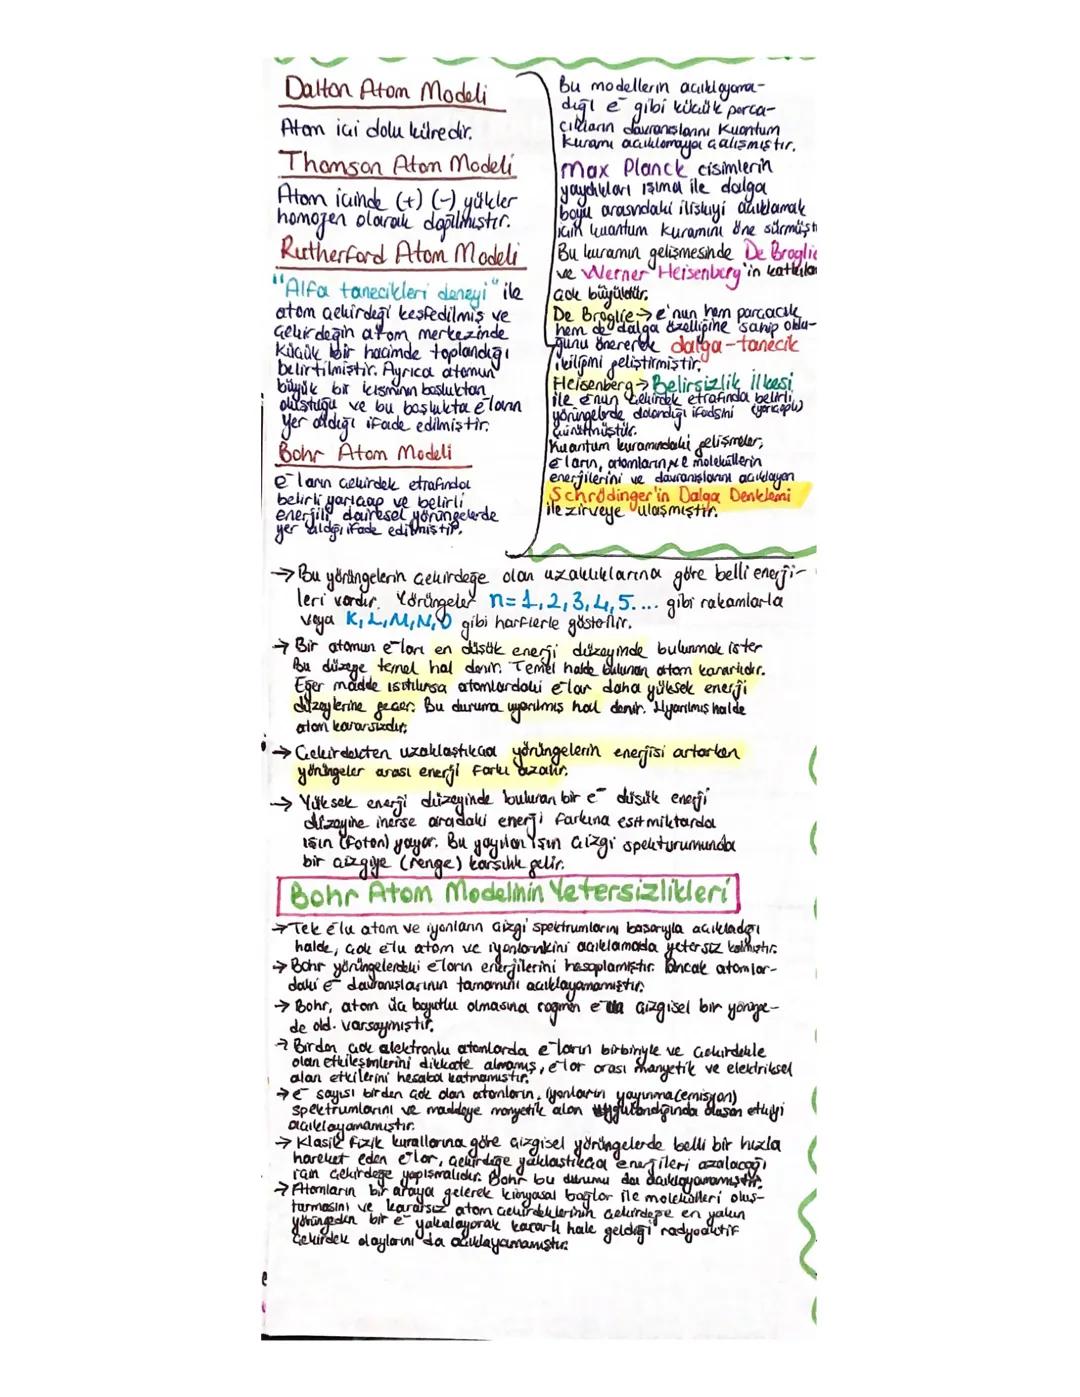 Dalton Atom Modeli
Atom içi dolu küredir.
Thomson Atom Modeli
Atom içinde (+) (-) yükler
homojen olarak dağılmıştır.
Rutherford Atom Modeli
"Alfa tanecikleri deneyi" ile
atom çekirdeği keşfedilmiş ve
çekirdeğin atom merkezinde
küçük bir hacimde toplandığı
belirtilmiştir. Ayrıca atomun
büyük bir kısmının boşluktan
oluştuğu ve bu boşlukta e⁻ların
yer aldığı ifade edilmiştir.
Bohr Atom Modeli
e⁻ların çekirdek etrafında
belirli yarıçap ve belirli
enerjili dairesel yörüngelerde
yer aldığı ifade edilmiştir.
Bu modellerin açıklayama-
dığı e⁻ gibi küçük parça-
cıkların davranışlarını Kuantum
Kuramı açıklamaya çalışmıştır.
Max Planck cisimlerin
yaydıkları ışıma ile dalga
boyu arasındaki ilişkiyi açıklamak
için kuantum kuramını öne sürmüşt
Bu kuramın gelişmesinde De Broglie
ve Werner Heisenberg'in katkıları
çok büyüktür.
De Broglie → e⁻nun hem parçacık
hem de dalga özelliğine sahip oldu-
ğunu önererek dalga-tanecik
ikiliğini geliştirmiştir.
Heisenberg → Belirsizlik İlkesi
ile e⁻nun çekirdek etrafında belirli
yörüngelerde dolandığı ifadesini (yarıçaplı)
çürütmüştür.
Kuantum kuramındaki gelişmeler,
e⁻ların, atomların ve moleküllerin
enerjilerini ve davranışlarını açıklayan
Schrödinger'in Dalga Denklemi
ile zirveye ulaşmıştır.
→ Bu yörüngelerin çekirdeğe olan uzaklıklarına göre belli enerji-
leri vardır. Yörüngeler n=1,2,3,4,5.... gibi rakamlarla
veya K,L,M,N,O gibi harflerle gösterilir.
→ Bir atomun e⁻ları en düşük enerji düzeyinde bulunmak ister
Bu düzeye temel hal denir. Temel halde bulunan atom kararlıdır.
Eğer madde ısıtılırsa atomlardaki e⁻lar daha yüksek enerji
düzeylerine geçer. Bu duruma uyarılmış hal denir. Uyarılmış halde
atom kararsızdır.
→ Çekirdekten uzaklaştıkça yörüngelerin enerjisi artarken
yörüngeler arası enerji farkı azalır.
→ Yüksek enerji düzeyinde bulunan bir e⁻ düşük enerji
düzeyine inerse aradaki enerji farkına eşit miktarda
ışın (foton) yayar. Bu yayılan ışın çizgi spekturumunda
bir çizgiye (renge) karşılık gelir.
Bohr Atom Modelinin Yetersizlikleri
→ Tek e⁻lu atom ve iyonların çizgi spektrumlarını başarıyla açıkladığı
halde, çok e⁻lu atom ve iyonlarınkini açıklamada yetersiz kalmıştır.
→ Bohr yörüngelerdeki e⁻ların enerjilerini hesaplamıştır. Ancak atomlar-
daki e⁻ davranışlarının tamamını açıklayamamıştır.
→ Bohr, atom üç boyutlu olmasına rağmen e⁻ çizgisel bir yörünge-
de old. varsaymıştır.
→ Birden çok elektronlu atomlarda e⁻ların birbiriyle ve çekirdekle
olan etkileşimlerini dikkate almamış, e⁻lar arası manyetik ve elektriksel
alan etkilerini hesaba katmamıştır.
→ e⁻ sayısı birden çok olan atomların, iyonların yayınma(emisyon)
spektrumlarını ve maddeye manyetik alan uygulandığında oluşan etkiyi
açıklayamamıştır.
→ Klasik fizik kurallarına göre çizgisel yörüngelerde belli bir hızla
hareket eden e⁻lar, çekirdeğe yaklaştıkça enerjileri azalacağı
için çekirdeğe yapışmalıdır. Bohr bu durumu da açıklayamamıştır.
→ Atomların bir araya gelerek kimyasal bağlar ile molekülleri oluş-
turmasını ve kararsız atom çekirdeklerinin çekirdeğe en yakın
yörüngeden bir e⁻ yakalayarak kararlı hale geldiği radyoaktif
çekirdek olaylarını da açıklayamamıştır.